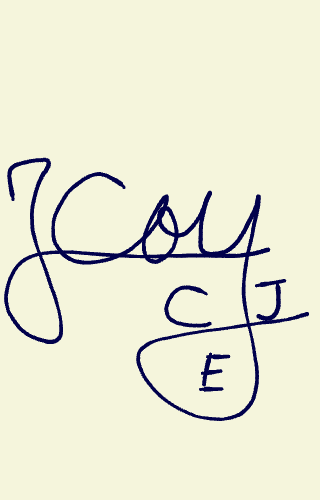 JCoy
C J
E